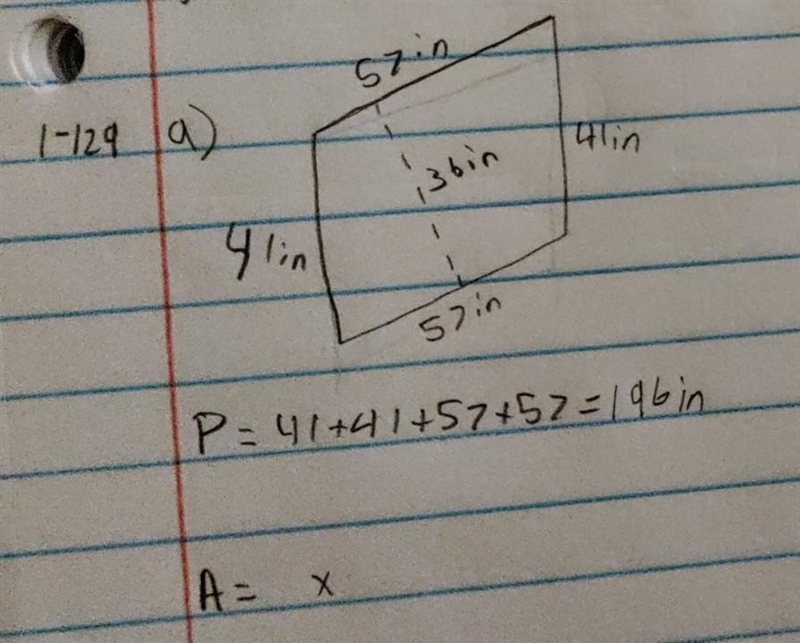 57 in
1-129 a)
41in
36in
41in
57 in
P = 41+41+57+57=196in
A = x